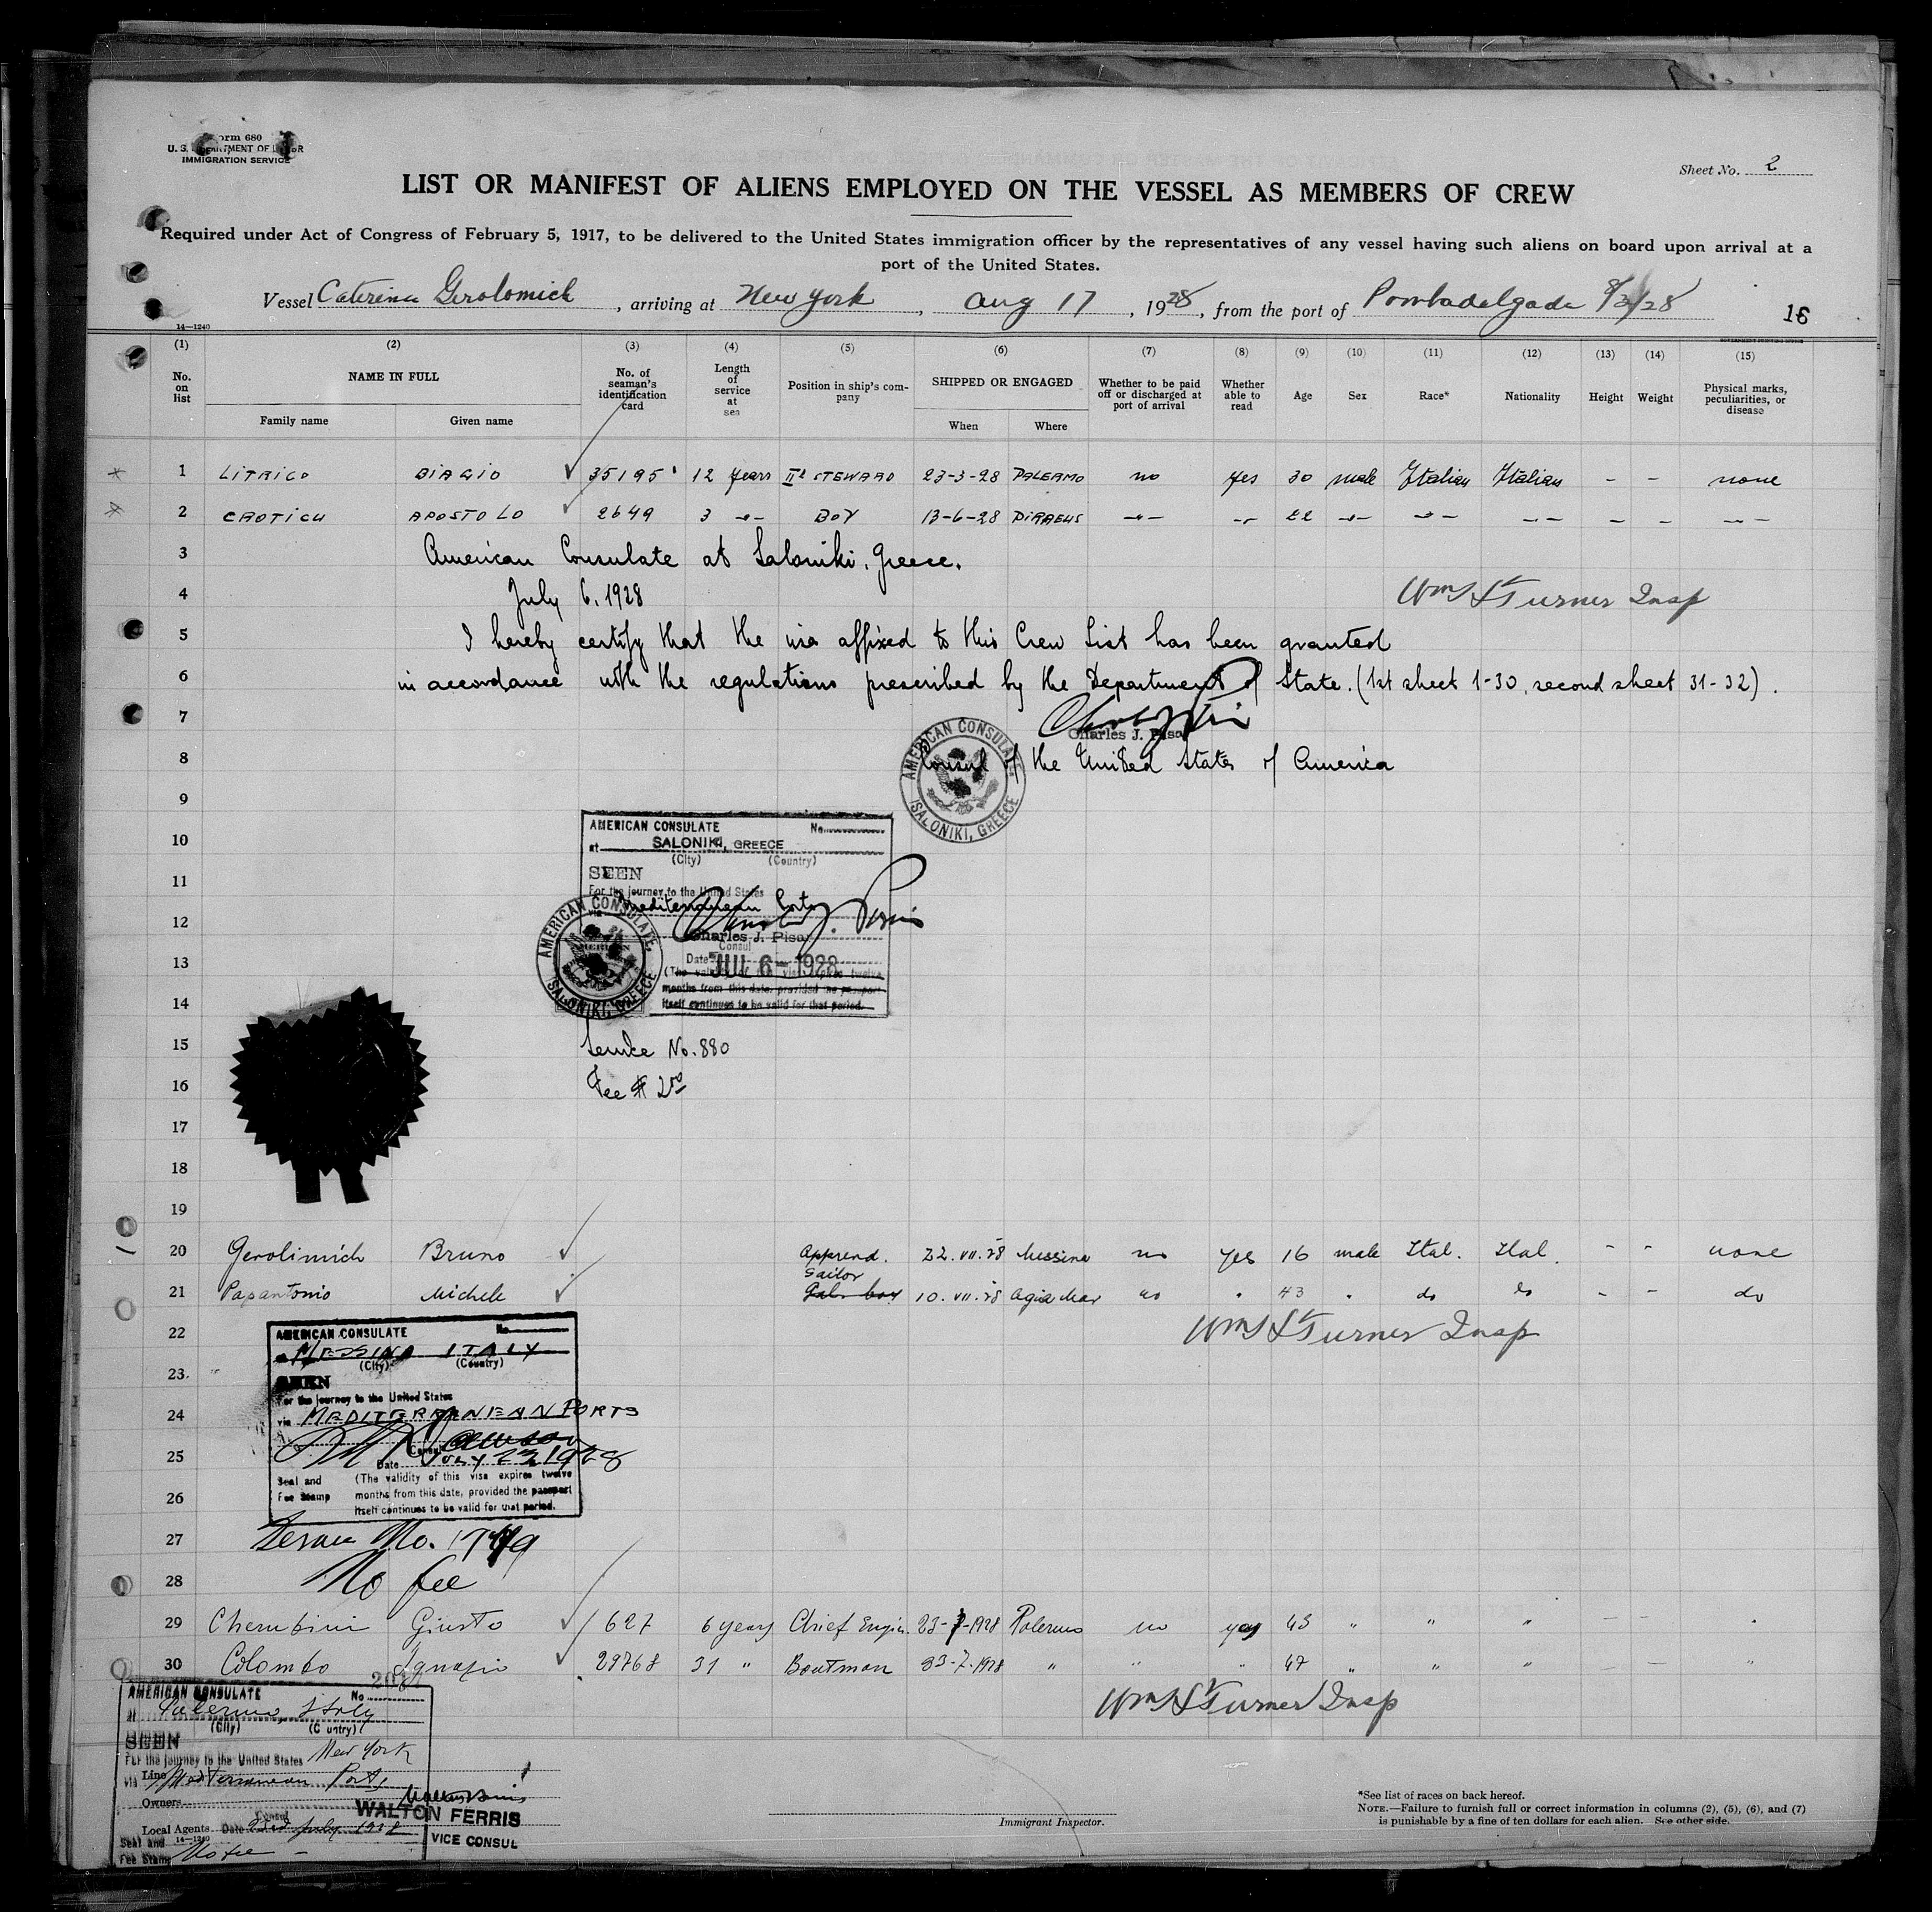 Form 680
U. S. DEPARTMENT OF LABOR
IMMIGRATION SERVICE
Sheet No. 2
LIST OR MANIFEST OF ALIENS EMPLOYED ON THE VESSEL AS MEMBERS OF CREW
Required under Act of Congress of February 5, 1917, to be delivered to the United States immigration officer by the representatives of any vessel having such aliens on board upon arrival at a
port of the United States.
Vessel Caterina Gerolomich, arriving at New York, Aug 17, 1928, from the port of Pontadelgada 8/3/28
16
14—1240
(1) (2) (3) (4) (5) (6) (7) (8) (9) (10) (11) (12) (13) (14) (15)
No. on list
NAME IN FULL
Family name
Given name
No. of seaman's identification card
Length of service at sea
Position in ship's company
SHIPPED OR ENGAGED
When
Where
Whether to be paid off or discharged at port of arrival
Whether able to read
Age
Sex
Race*
Nationality
Height
Weight
Physical marks, peculiarities, or disease
1 LITRICO BIAGIO 35195 12 years IId STEWARD 23-3-28 PALERMO no yes 30 male Italian Italian - - none
2 CROTICH APOSTOLO 2649 3 -"- BOY 13-6-28 PIRAEUS -"- -"- 22 -"- -"- -"- - - -"-
3 American Consulate at Saloniki, Greece.
4 July 6, 1928
Wm S Turner Insp
5 I hereby certify that the visa affixed to this Crew List has been granted
6 in accordance with the regulations prescribed by the Department of State. (1st sheet 1-30, second sheet 31-32).
7
Charles J. Pisar
8 Consul of the United States of America
AMERICAN CONSULATE
SALONIKI, GREECE
9
10
11
12
13
14
AMERICAN CONSULATE No.
at SALONIKI, GREECE
(City) (Country)
SEEN
For the journey to the United States
via Mediterranean Ports
Charles J. Pisar
Consul
Date JUL 6 - 1928
(The validity of this visa expires twelve
months from this date, provided the passport
itself continues to be valid for that period.
AMERICAN CONSULATE,
SALONIKI, GREECE
15 Service No. 880
16 Fee $ 2.00
17
18
19
20 Gerolimich Bruno Apprend. 22.VII.28 Messina no yes 16 male Ital. Ital. - - none
Sailor
21 Papantonio Michele 10.VII.28 Agia Mar no " 43 " do do - - do
22
Wm S Turner Insp
23
24
25
26
AMERICAN CONSULATE No.
at MESSINA ITALY
(City) (Country)
SEEN
For the journey to the United States
via MEDITERRANEAN PORTS
Consul
Date JULY 23 1928
Seal and
Fee Stamp
(The validity of this visa expires twelve
months from this date, provided the passport
itself continues to be valid for that period.
27 Service No. 1749
28 No fee
29 Cherubini Giusto 627 6 years Chief Engin. 23-7-1928 Palermo no yes 43 " " " - - "
30 Colombo Ignazio 29768 31 " Boatman 23-7-1928 " " " 47 " " " - - "
Wm S Turner Insp
AMERICAN CONSULATE No.
at Palermo, Italy
(City) (Country)
SEEN
For the journey to the United States New York
via Mediterranean Ports
Line
Owners
Consul
Local Agents
Date 23rd July 1928
14—1240
Seal and
Fee Stamp No fee
WALTON FERRIS
VICE CONSUL
Immigrant Inspector.
*See list of races on back hereof.
NOTE.—Failure to furnish full or correct information in columns (2), (5), (6), and (7)
is punishable by a fine of ten dollars for each alien. See other side.